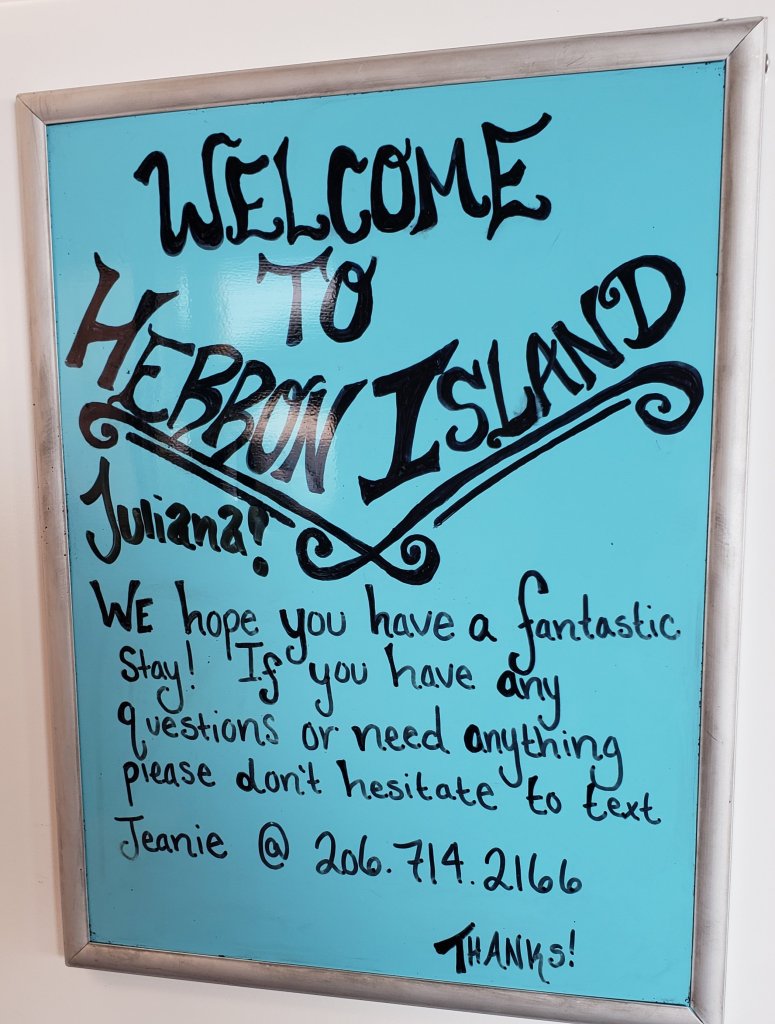 WELCOME
TO
HEBRON ISLAND
Juliana!
WE hope you have a fantastic
Stay! If you have any
questions or need anything
please don't hesitate to text
Jeanie @ 206.714.2166
THANKS!